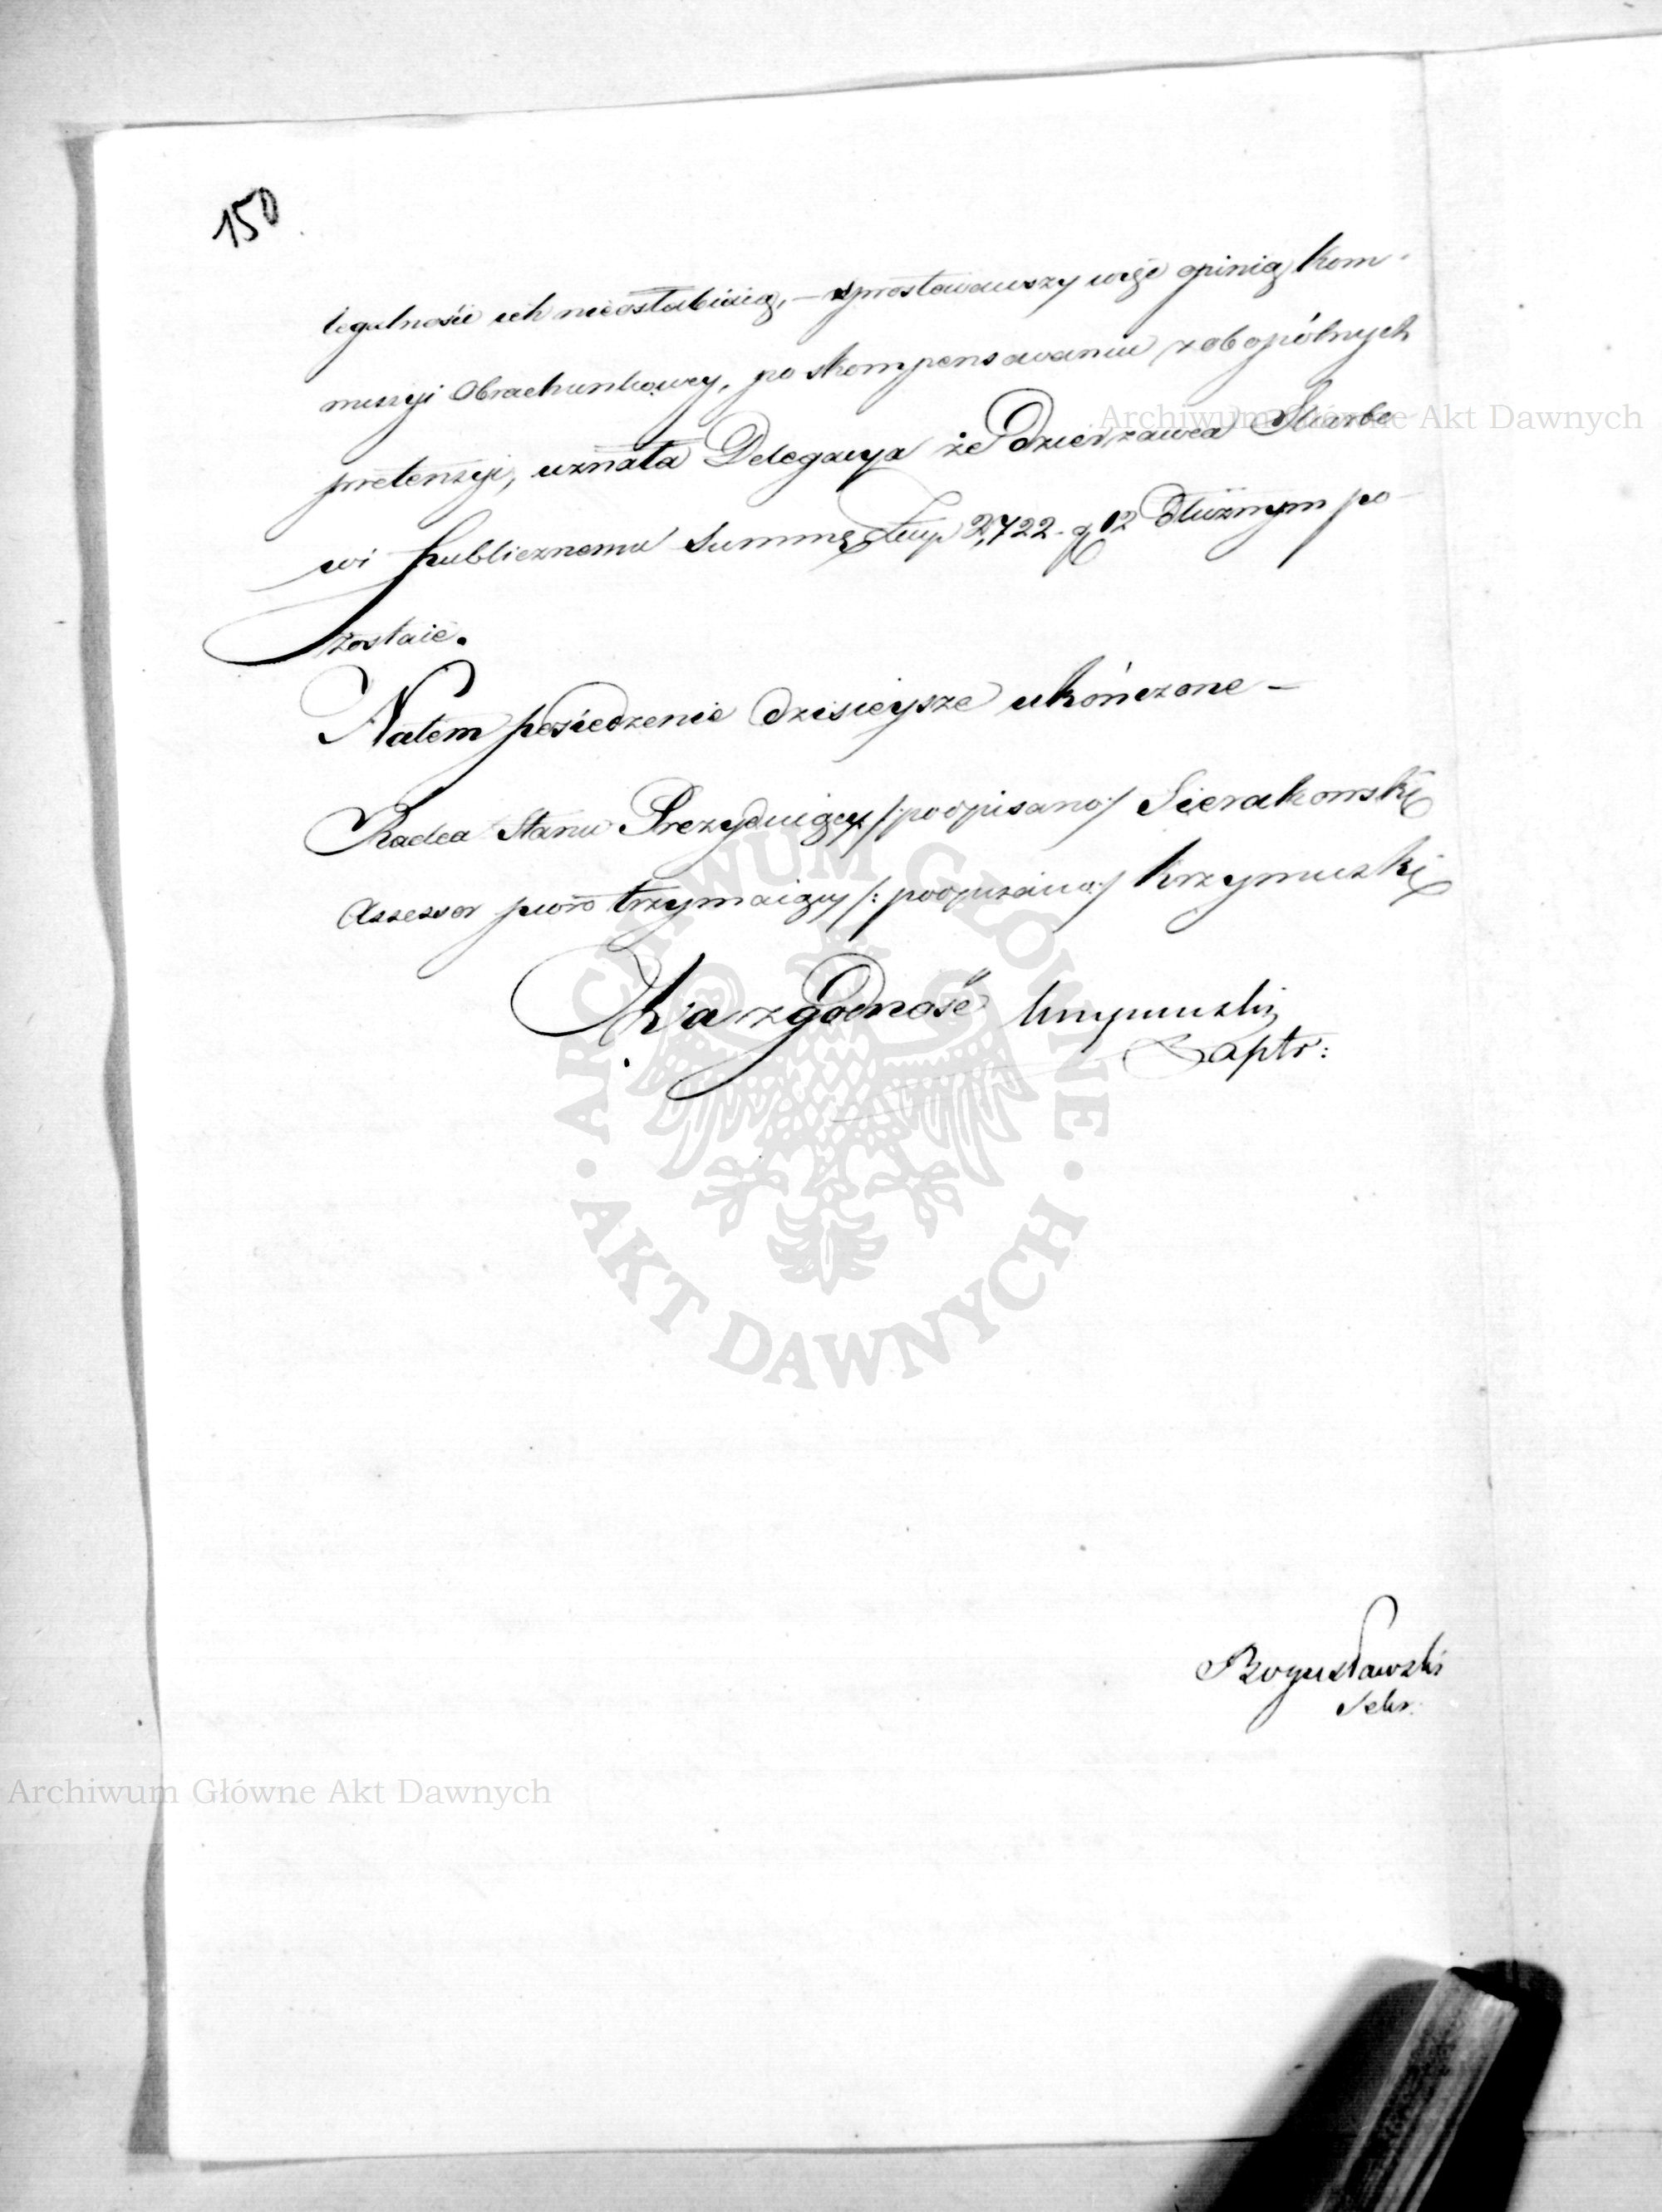 150
legalności ich nieosłabiaią, – sprostowawszy więc opinią Kom-
missyi Obrachunkowey, po skompensowaniu zobopólnych
pretensyi, uznała Delegacya że Dzierzawca Skarbo-
wi Publicznemu Summę Złp 2,722. g 12 dłużnym po-
zostaie.
Natem posiedzenie dzisieysze ukończone –
Radca Stanu Prezyduiący /:podpisano:/ Sierakowski
Assessor pióro trzymaiący /:podpisano:/ Krzymuski
Za zgodność Krzymuski
Bogusławski
Sekr.
Archiwum Główne Akt Dawnych
ARCHIWUM GŁÓWNE
AKT DAWNYCH
Archiwum Główne Akt Dawnych